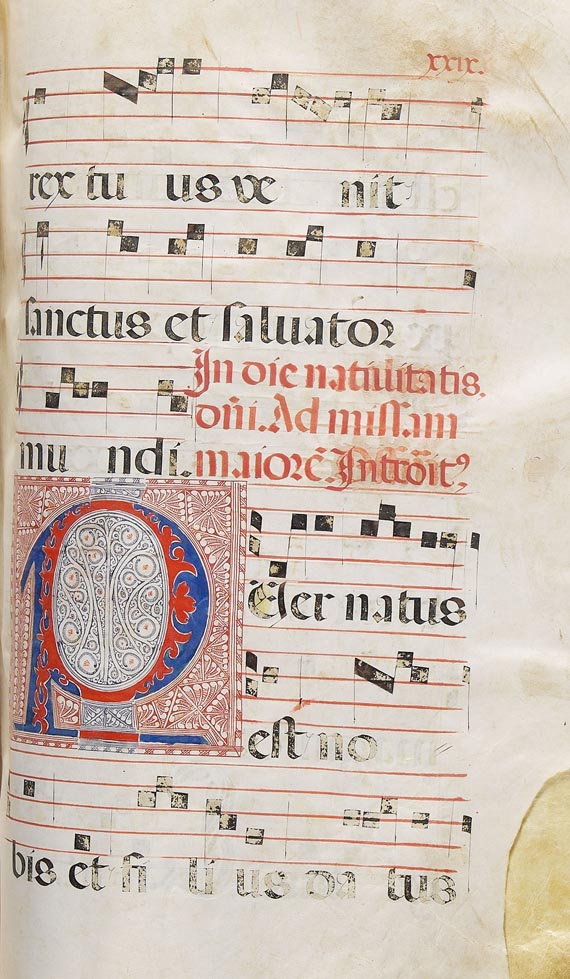 xxix.
rex tu us ve nit
sanctus et salvator
In die natilitatis.
dñi. Ad missam
mu ndi. maiorẽ. Introit⁹
P Uer natus
est no
bis et fi li us da tus